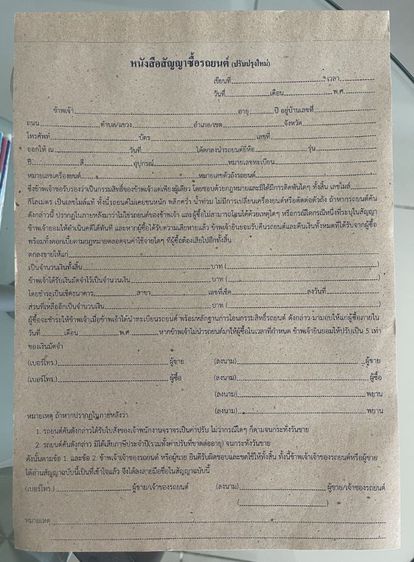 หนังสือสัญญาซื้อรถยนต์ (ปรับปรุงใหม่)
เขียนที่ เวลา
วันที่ เดือน พ.ศ.
ข้าพเจ้า อายุ ปี อยู่บ้านเลขที่
ถนน ตำบล/แขวง อำเภอ/เขต จังหวัด
โทรศัพท์ บัตร เลขที่
ออกให้ ณ วันที่ ได้ตกลงนำรถยนต์ยี่ห้อ รุ่น
ปี สี อุปกรณ์ หมายเลขทะเบียน
หมายเลขเครื่องยนต์ หมายเลขตัวถังรถยนต์
ซึ่งข้าพเจ้าขอรับรองว่าเป็นกรรมสิทธิ์ของข้าพเจ้าแต่เพียงผู้เดียว โดยชอบด้วยกฎหมายและมิให้มีการติดพันใดๆ ทั้งสิ้น เลขไมล์
กิโลเมตร เป็นเลขไมล์แท้ ทั้งนี้รถยนต์ไม่เคยชนหนัก พลิกคว่ำ น้ำท่วม ไม่มีการเปลี่ยนเครื่องยนต์หรือตัดต่อตัวถัง ถ้าหากรถยนต์คัน
ดังกล่าวนี้ ปรากฏในภายหลังว่าไม่ใช่รถยนต์ของข้าพเจ้า และผู้ซื้อไม่สามารถโอนได้ด้วยเหตุใดๆ หรือกรณีใดกรณีหนึ่งที่ระบุในสัญญา
ข้าพเจ้ายอมให้ดำเนินคดีได้ทันที และหากผู้ซื้อได้รับความเสียหายแล้ว ข้าพเจ้ายินยอมรับคืนรถยนต์และคืนเงินทั้งหมดที่ได้รับจากผู้ซื้อ
พร้อมทั้งดอกเบี้ยตามกฎหมายตลอดจนค่าใช้จ่ายใดๆ ที่ผู้ซื้อต้องเสียไปอีกทั้งสิ้น
ตกลงขายให้แก่
เป็นจำนวนเงินทั้งสิ้น บาท (
ข้าพเจ้าได้รับเงินมัดจำไว้เป็นจำนวนเงิน บาท (
โดยชำระเป็นเช็คธนาคาร สาขา เลขที่เช็ค ลงวันที่
ส่วนที่เหลืออีกเป็นจำนวนเงิน บาท (
ผู้ซื้อจะชำระให้ข้าพเจ้าเมื่อข้าพเจ้าได้นำทะเบียนรถยนต์ พร้อมหลักฐานการโอนกรรมสิทธิ์รถยนต์ ดังกล่าว มามอบให้แก่ผู้ซื้อภายใน
วันที่ เดือน พ.ศ หากข้าพเจ้าไม่นำรถยนต์มาให้ผู้ซื้อในเวลาที่กำหนด ข้าพเจ้ายินยอมให้ปรับเป็น 5 เท่า
ของเงินมัดจำ
(เบอร์โทร.) ผู้ขาย (ลงนาม) ผู้ขาย
(เบอร์โทร.) ผู้ซื้อ (ลงนาม) ผู้ซื้อ
(ลงนาม) พยาน
(ลงนาม) พยาน
หมายเหตุ ถ้าหากปรากฏในภายหลังว่า
1. รถยนต์คันดังกล่าวได้รับใบสั่งของเจ้าพนักงานจราจรเป็นค่าปรับ ไม่ว่ากรณีใดๆ ก็ตามจนกระทั่งวันขาย
2. รถยนต์คันดังกล่าว มิได้เสียภาษีประจำปี(รวมทั้งค่าปรับที่ขาดต่ออายุ) จนกระทั่งวันขาย
ดังนั้นตามข้อ 1. และข้อ 2. ข้าพเจ้าเจ้าของรถยนต์ หรือผู้ขาย ยินดีรับผิดชอบและชดใช้ให้ทั้งสิ้น ทั้งนี้ข้าพเจ้าเจ้าของรถยนต์หรือผู้ขาย
ได้อ่านสัญญาฉบับนี้เป็นที่เข้าใจแล้ว จึงได้ลงลายมือชื่อในสัญญาฉบับนี้
(เบอร์โทร.) ผู้ขาย/เจ้าของรถยนต์ (ลงนาม) ผู้ขาย/เจ้าของรถยนต์
( )
หมายเหตุ